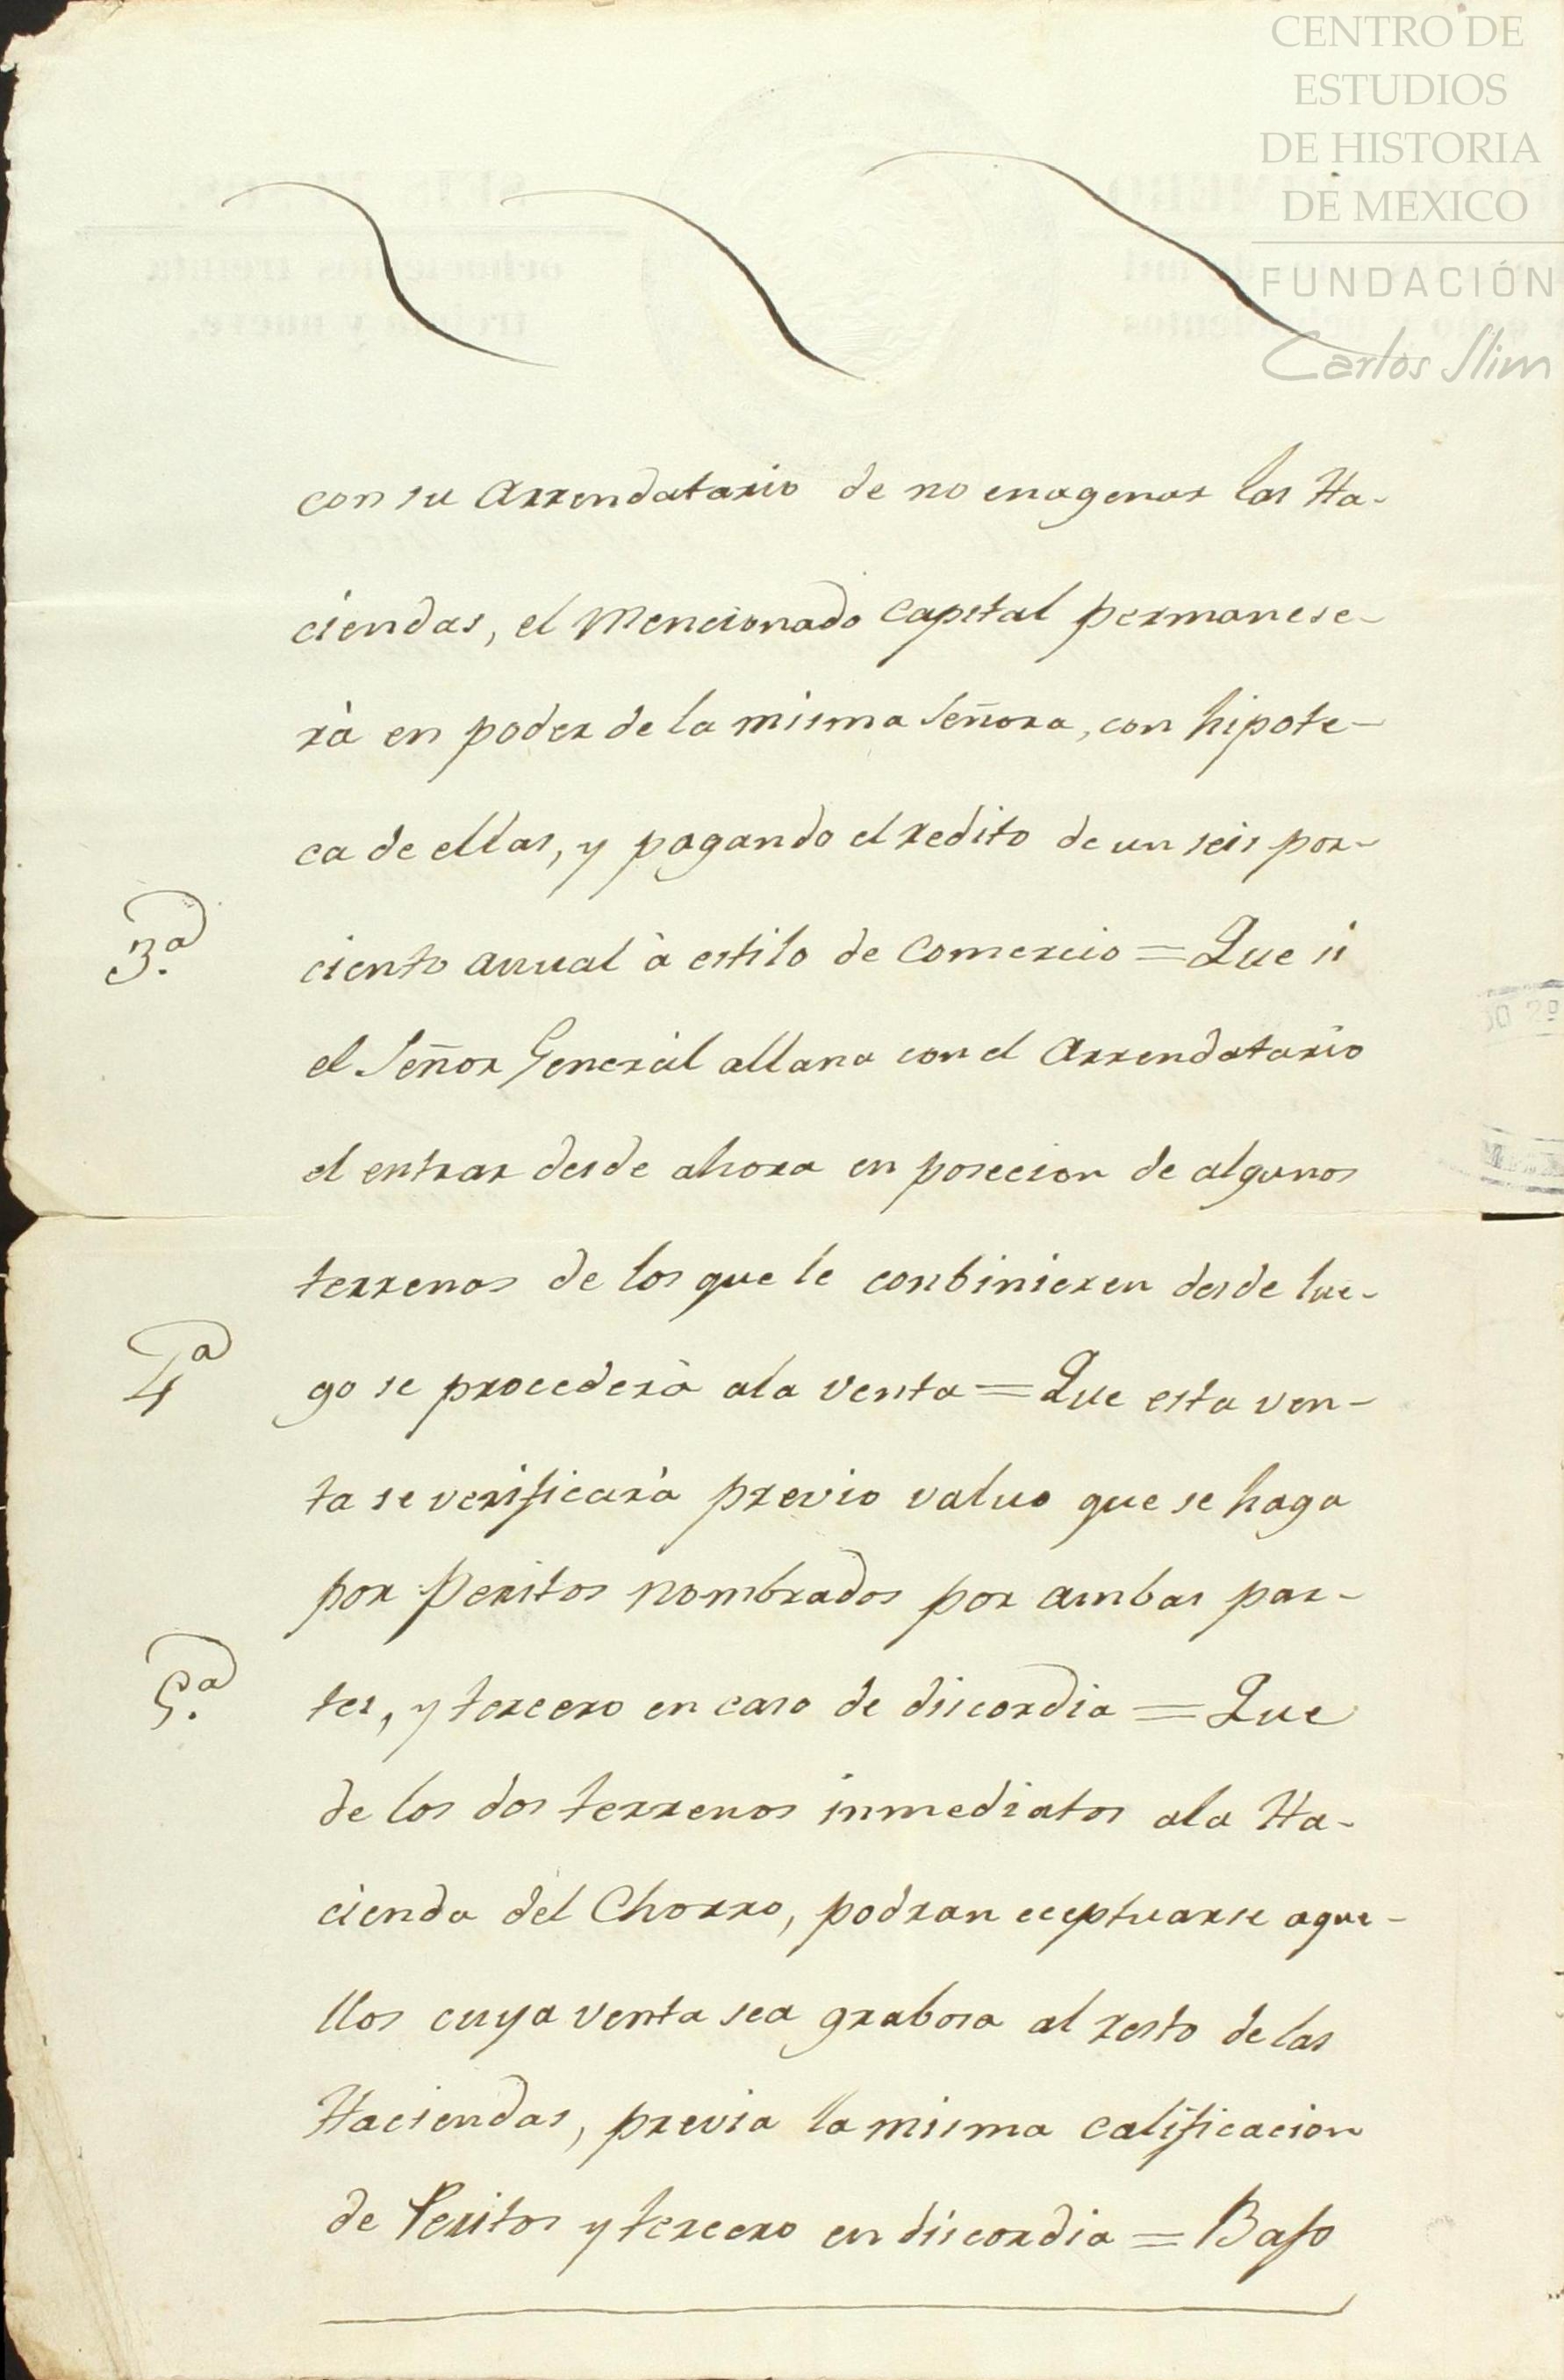 CENTRO DE
ESTUDIOS
DE HISTORIA
DE MEXICO
FUNDACIÓN
Carlos Slim
con su Arrendatario de no enagenar las Ha-
ciendas, el Mencionado Capital permanese-
rà en poder de la misma Señora, con hipote-
ca de ellas, y pagando el redito de un seis por-
3.a
ciento anual à estilo de Comercio = Que si
el Señor General allana con el Arrendatario
el entrar desde ahora en posecion de algunos
terrenos de los que le conbinieren desde lue-
4a
go se procederà ala venta = Que esta ven-
ta se verificarà previo valuo que se haga
por Peritos nombrados por ambas par-
5.a
tes, y tercero en caso de discordia = Que
de los dos terrenos inmediatos ala Ha-
cienda del Chorro, podran eceptuarse aque-
llos cuya venta sea grabosa al resto de las
Haciendas, previa la misma calificacion
de Peritos y tercero en discordia = Bajo